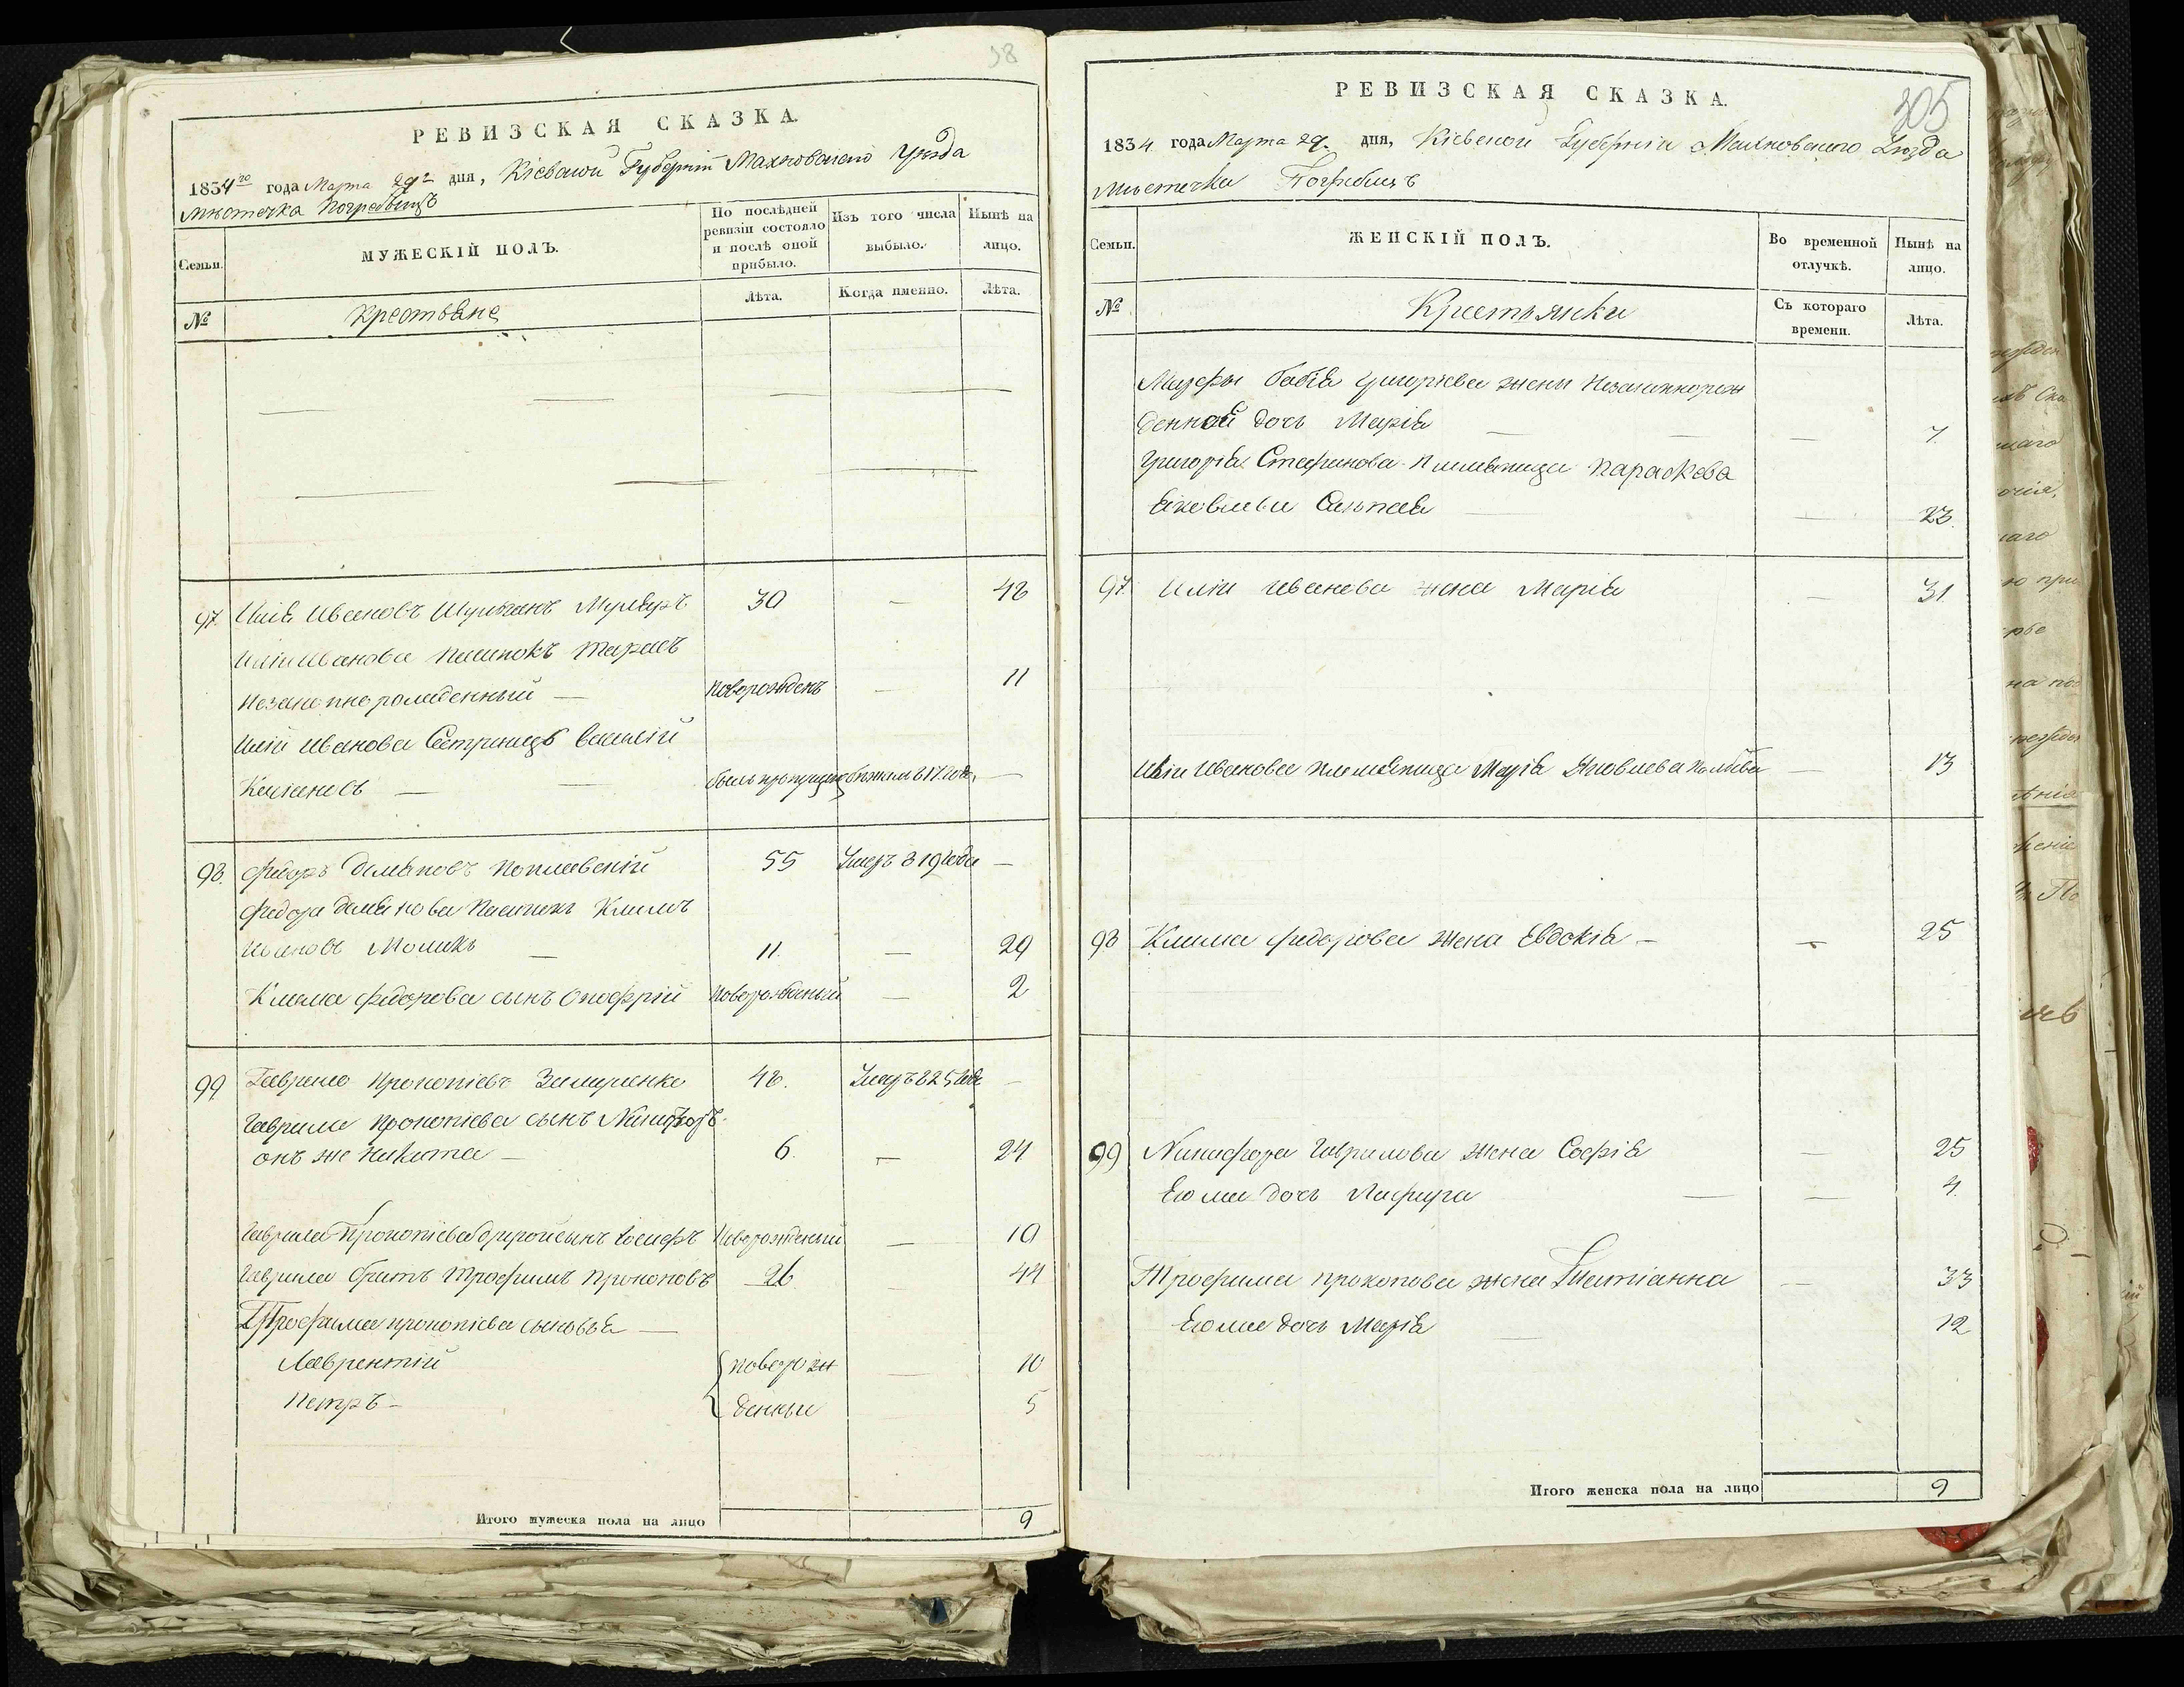 98
РЕВИЗСКАЯ СКАЗКА.
1834го года Марта 29го дня, Кіевской Губерніи Махновскаго Уѣзда
Мѣстечка Погребищъ
Семьи.
МУЖЕСКІЙ ПОЛЪ.
По послѣдней ревизіи состояло и послѣ оной прибыло.
Изъ того числа выбыло.
Нынѣ на лицо.
№
Крестьяне
Лѣта.
Когда именно.
Лѣта.
97. Илія Ивановъ 30 — 48
Иліи Иванова Пасинокъ Тарасъ
незаконнорожденный — новорожденъ — 11
Иліи Иванова Сестринецъ Василій
былъ пропущенъ —
98. Федоръ Демьяновъ 55 Умеръ 819 года —
Федора Демьянова Пасинокъ Климъ
Ивановъ 11. — 29
Клима Федорова сынъ Онофрій Новорожденный — 2
99 Гаврило Прокопіевъ 48. Умеръ 825 года —
Гаврила Прокопіева сынъ Никифоръ
онъ же Никита — 6. — 24
Гаврила Прокопіева другой сынъ Іосифъ Новорожденный — 10
Гаврила братъ Трофимъ Прокоповъ 26 — 44
Трофима прокопіева сыновья —
Лаврентій новорож — 10
Петръ — денные 5
Итого мужеска пола на лицо 9
305
РЕВИЗСКАЯ СКАЗКА.
1834 года Марта 29. дня, Кіевской Губерніи Махновскаго Уѣзда
Мѣстечка Погребищъ
Семьи.
ЖЕНСКІЙ ПОЛЪ.
Во временной отлучкѣ.
Нынѣ на лицо.
№
Крестьянки
Съ котораго времени.
Лѣта.
жены незаконнорож
денной дочь Марія — — — 7
Григорія Стефанова племяница Параскева
— — 23.
97. Иліи Иванова жена Марія — 31
Иліи Иванова племяница Марія Яковлева — 13
98 Клима Федорова жена Евдокія — — 25
99 Никифора Гаврилова жена Софія — 25
Его же дочь — — 4.
Трофима прокопова жена Татіанна — 33
Его же дочь Марія — 12
Итого женска пола на лицо 9